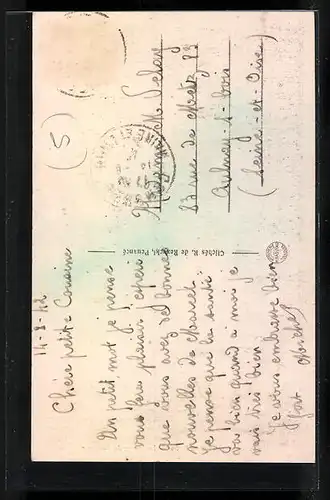 14-8-42
Chère petite Cousine
Un petit mot je pense
vous faire plaisir j'espère
que vous avez de bonnes
nouvelles de Marcel
Je pense que la santé
vas bien quand a moi je
vais très bien
Je vous embrasse bien
fort
Clichés R. de
(5)
23 rue de Metz 23
Aulnay-s-Bois
(Seine-et-Oise)